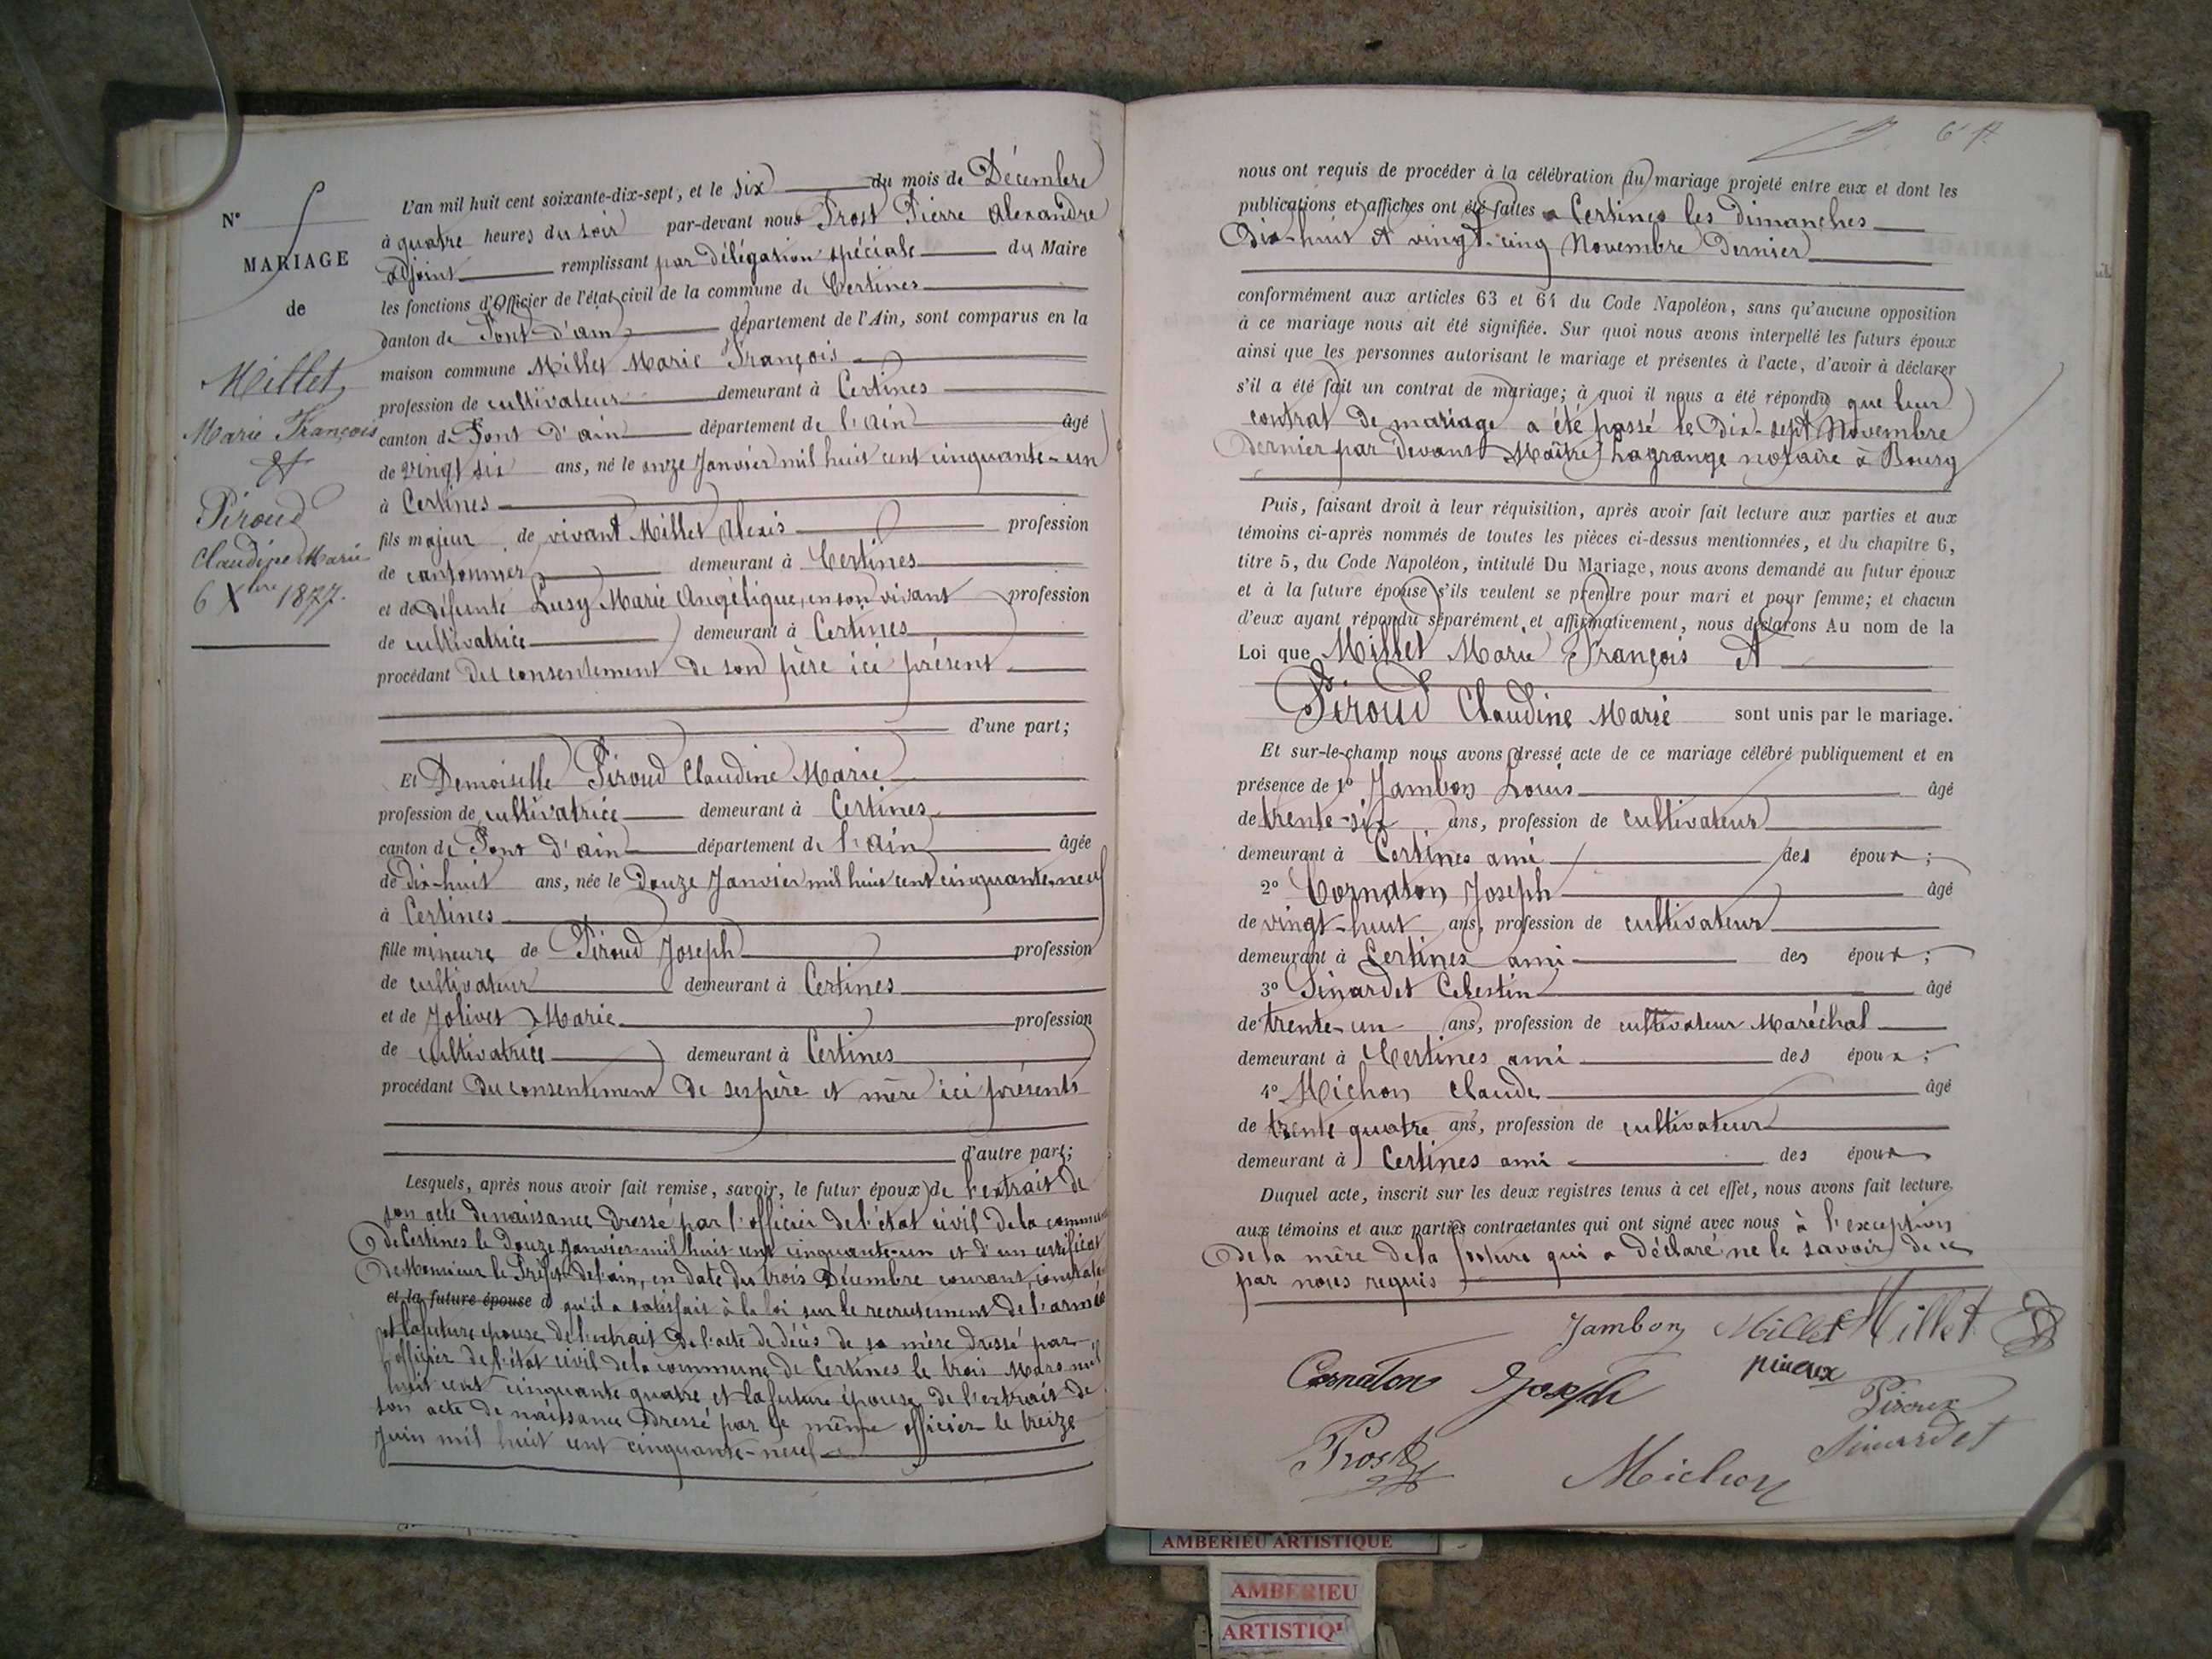 N°
MARIAGE
de
Millet
Marie François
et
Piroud
Claudine Marie
6 Xbre 1877.
L'an mil huit cent soixante-dix-sept, et le six du mois de Décembre
à quatre heures du soir par-devant nous Prost Pierre Alexandre
adjoint remplissant par délégation spéciale du Maire
les fonctions d'Officier de l'état civil de la commune de Certines
canton de Pont d'ain département de l'Ain, sont comparus en la
maison commune Millet Marie François
profession de cultivateur demeurant à Certines
canton de Pont d'ain département de l'ain âgé
de vingt six ans, né le onze Janvier mil huit cent cinquante-un
à Certines
fils majeur de vivant Millet Alexis profession
de cantonnier demeurant à Certines
et de défunte Lusy Marie Angélique, en son vivant profession
de cultivatrice demeurant à Certines
procédant du consentement de son père ici présent
d'une part;
Et Demoiselle Piroud Claudine Marie
profession de cultivatrice demeurant à Certines
canton de Pont d'ain département de l'ain âgée
de dix-huit ans, née le Douze Janvier mil huit cent cinquante neuf
à Certines
fille mineure de Piroud Joseph profession
de cultivateur demeurant à Certines
et de Jolivet Marie profession
de cultivatrice demeurant à Certines
procédant du consentement de ses père et mère ici présents
d'autre part;
Lesquels, après nous avoir fait remise, savoir, le futur époux de l'extrait de
son acte de naissance dressé par l'officier de l'état civil de la commune
de Certines le Douze Janvier mil huit cent cinquante-un et d'un certificat
de Monsieur le Préfet de l'ain, en date du trois Décembre courant, constate
et la future épouse d qu'il a satisfait à la loi sur le recrutement de l'armée
et la future épouse de l'extrait de l'acte de décès de sa mère dressé par
l'officier de l'état civil de la commune de Certines le trois Mars mil
huit cent cinquante quatre et la future épouse de l'extrait de
son acte de naissance dressé par le même officier le treize
Juin mil huit cent cinquante-neuf
nous ont requis de procéder à la célébration du mariage projeté entre eux et dont les
publications et affiches ont été faites a Certines les dimanches
Dix-huit et vingt-cinq Novembre Dernier
conformément aux articles 63 et 64 du Code Napoléon, sans qu'aucune opposition
à ce mariage nous ait été signifiée. Sur quoi nous avons interpellé les futurs époux
ainsi que les personnes autorisant le mariage et présentes à l'acte, d'avoir à déclarer
s'il a été fait un contrat de mariage; à quoi il nous a été répondu que leur
contrat de mariage a été passé le Dix-sept Novembre
dernier par devant Maître Lagrange notaire à Bourg
Puis, faisant droit à leur réquisition, après avoir fait lecture aux parties et aux
témoins ci-après nommés de toutes les pièces ci-dessus mentionnées, et du chapitre 6,
titre 5, du Code Napoléon, intitulé Du Mariage, nous avons demandé au futur époux
et à la future épouse s'ils veulent se prendre pour mari et pour femme; et chacun
d'eux ayant répondu séparément et affirmativement, nous déclarons Au nom de la
Loi que Millet Marie François Et
Piroud Claudine Marie sont unis par le mariage.
Et sur-le-champ nous avons dressé acte de ce mariage célébré publiquement et en
présence de 1° Jambon Louis âgé
de trente-six ans, profession de cultivateur
demeurant à Certines ami des époux;
2° Cornaton Joseph âgé
de vingt-huit ans, profession de cultivateur
demeurant à Certines ami des époux;
3° Sinardet Celestin âgé
de trente-un ans, profession de cultivateur Maréchal
demeurant à Certines ami des époux;
4° Michon Claude âgé
de trente quatre ans, profession de cultivateur
demeurant à Certines ami des époux
Duquel acte, inscrit sur les deux registres tenus à cet effet, nous avons fait lecture
aux témoins et aux parties contractantes qui ont signé avec nous à l'exception
de la mère de la future qui a déclaré ne le savoir de ce
par nous requis
Jambon Millet Millet
Cornaton Joseph
Piroux
Sinardet
Prost
Michon
AMBERIEU ARTISTIQUE
AMBERIEU
ARTISTIQ